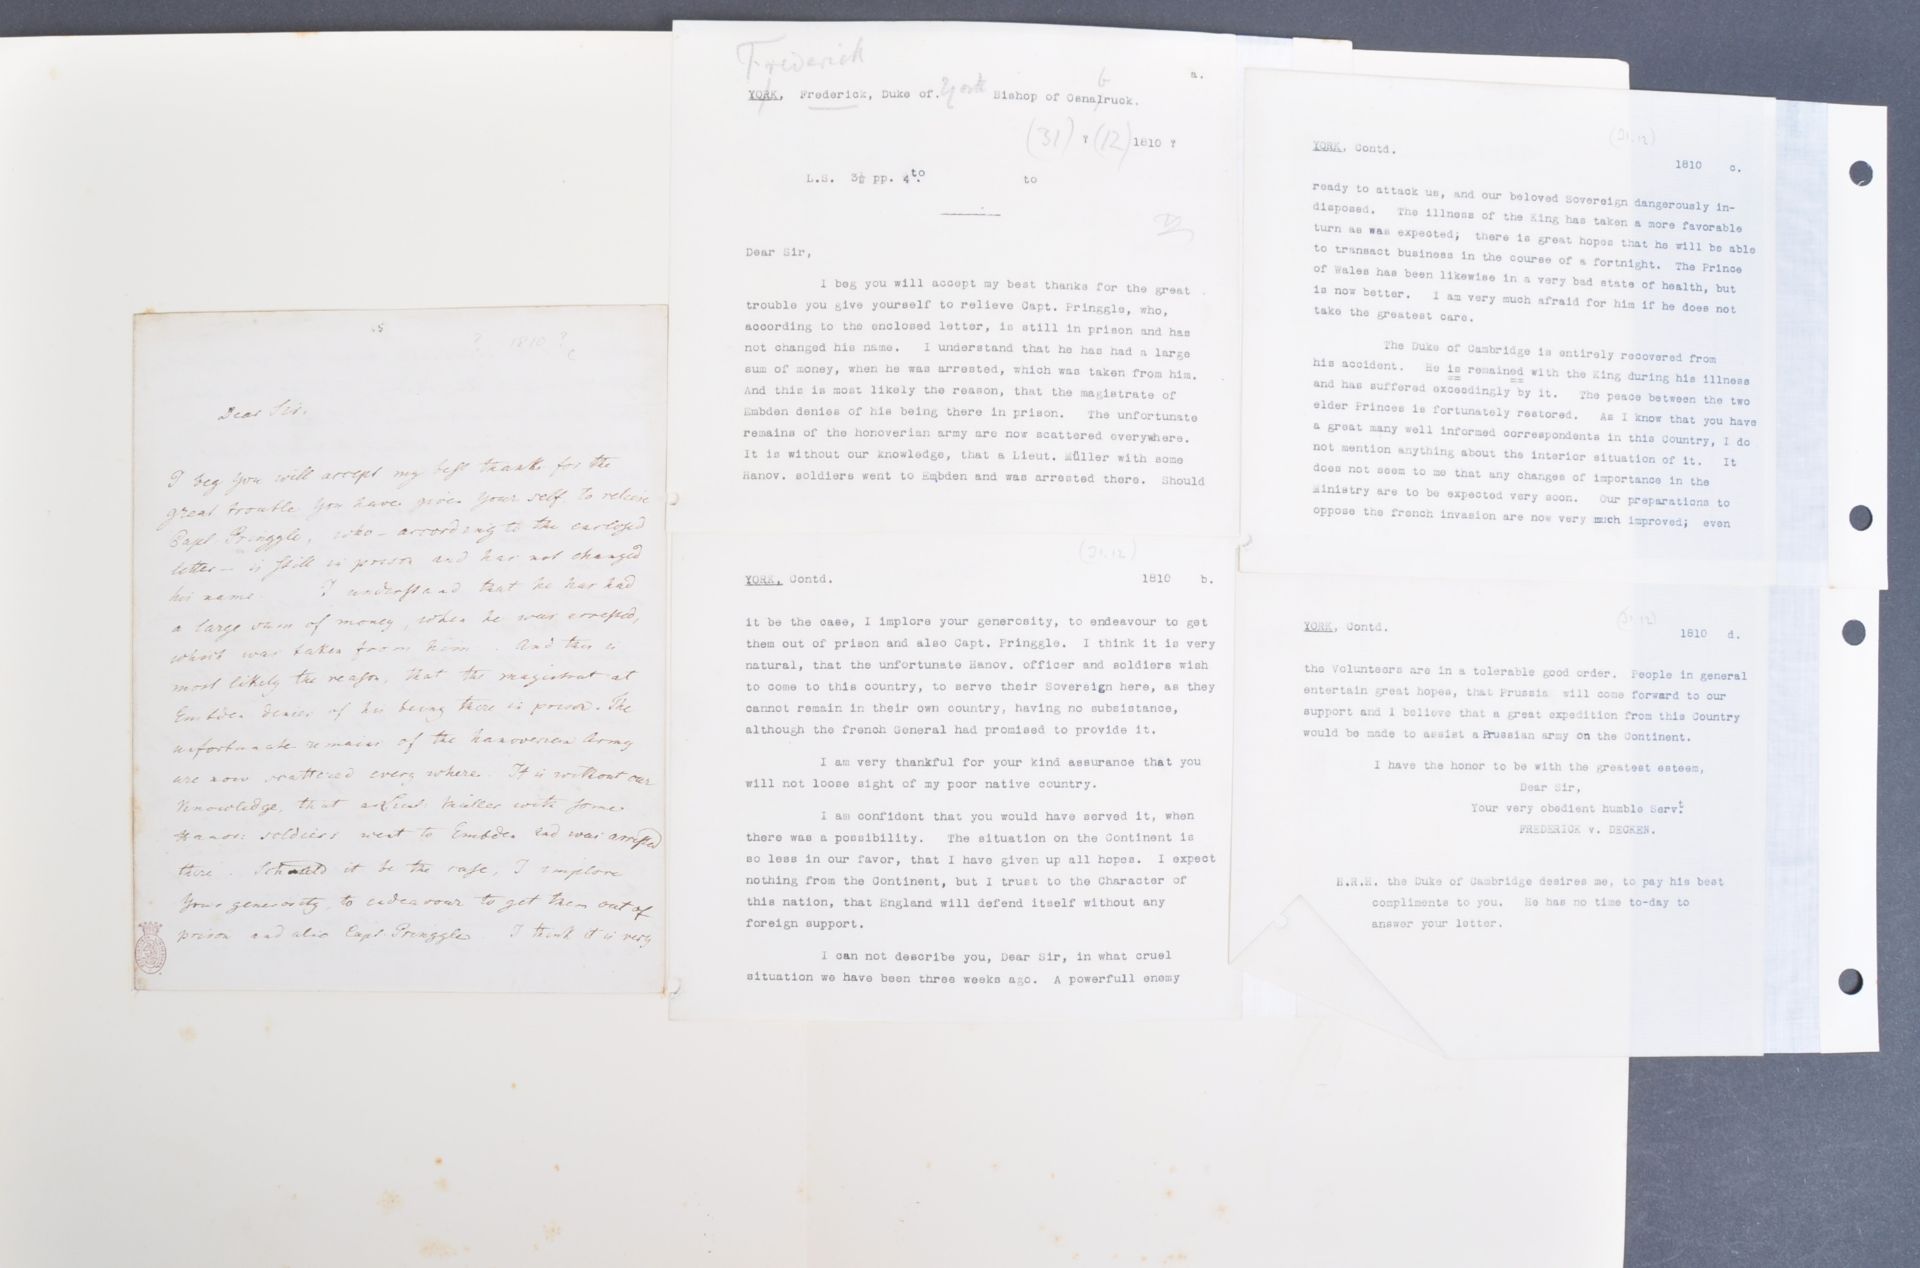 ? 1810 ?
Dear Sir,
I beg you will accept my best thanks for the
great trouble you have given your self to relieve
Capt. Pringgle, who – according to the enclosed
letter – is still in prison and has not changed
his name. I understand that he has had
a large sum of money, when he was arrested,
which was taken from him. And this is
most likely the reason, that the magistrat at
Embden denies of his being there in prison. The
unfortunate remains of the hanoverian Army
are now scattered every where. It is without our
knowledge, that a Lieut. Müller with some
Hanov: soldiers went to Embden and was arrested
there. Should it be the case, I implore
Your generosity, to endeavour to get them out of
prison and also Capt Pringgle. I think it is very
Frederick
a.
YORK, Frederick, Duke of. York Bishop of Osnalruck.
b
(31) ? (12) 1810 ?
L.S. 3½ pp. 4to. to
Dear Sir,
I beg you will accept my best thanks for the great
trouble you give yourself to relieve Capt. Pringgle, who,
according to the enclosed letter, is still in prison and has
not changed his name. I understand that he has had a large
sum of money, when he was arrested, which was taken from him.
And this is most likely the reason, that the magistrate of
Embden denies of his being there in prison. The unfortunate
remains of the honoverian army are now scattered everywhere.
It is without our knowledge, that a Lieut. Müller with some
Hanov. soldiers went to Embden and was arrested there. Should
(31.12)
YORK, Contd. 1810 b.
it be the case, I implore your generosity, to endeavour to get
them out of prison and also Capt. Pringgle. I think it is very
natural, that the unfortunate Hanov. officer and soldiers wish
to come to this country, to serve their Sovereign here, as they
cannot remain in their own country, having no subsistance,
although the french General had promised to provide it.
I am very thankful for your kind assurance that you
will not loose sight of my poor native country.
I am confident that you would have served it, when
there was a possibility. The situation on the Continent is
so less in our favor, that I have given up all hopes. I expect
nothing from the Continent, but I trust to the Character of
this nation, that England will defend itself without any
foreign support.
I can not describe you, Dear Sir, in what cruel
situation we have been three weeks ago. A powerfull enemy
(31.12)
YORK, Contd.
1810 c.
ready to attack us, and our beloved Sovereign dangerously in-
disposed. The illness of the King has taken a more favorable
turn as was expected; there is great hopes that he will be able
to transact business in the course of a fortnight. The Prince
of Wales has been likewise in a very bad state of health, but
is now better. I am very much afraid for him if he does not
take the greatest care.
The Duke of Cambridge is entirely recovered from
his accident. He is remained with the King during his illness
and has suffered exceedingly by it. The peace between the two
elder Princes is fortunately restored. As I know that you have
a great many well informed correspondents in this Country, I do
not mention anything about the interior situation of it. It
does not seem to me that any changes of importance in the
Ministry are to be expected very soon. Our preparations to
oppose the french invasion are now very much improved; even
(31.12)
YORK, Contd.
1810 d.
the Volunteers are in a tolerable good order. People in general
entertain great hopes, that Prussia will come forward to our
support and I believe that a great expedition from this Country
would be made to assist a Prussian army on the Continent.
I have the honor to be with the greatest esteem,
Dear Sir,
Your very obedient humble Servt.
FREDERICK v. DECKEN.
H.R.H. the Duke of Cambridge desires me, to pay his best
compliments to you. He has no time to-day to
answer your letter.